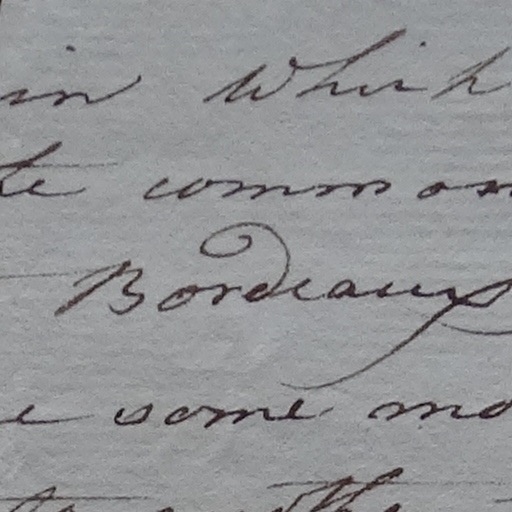 in which
te common
Bordeaux
e some mo
the